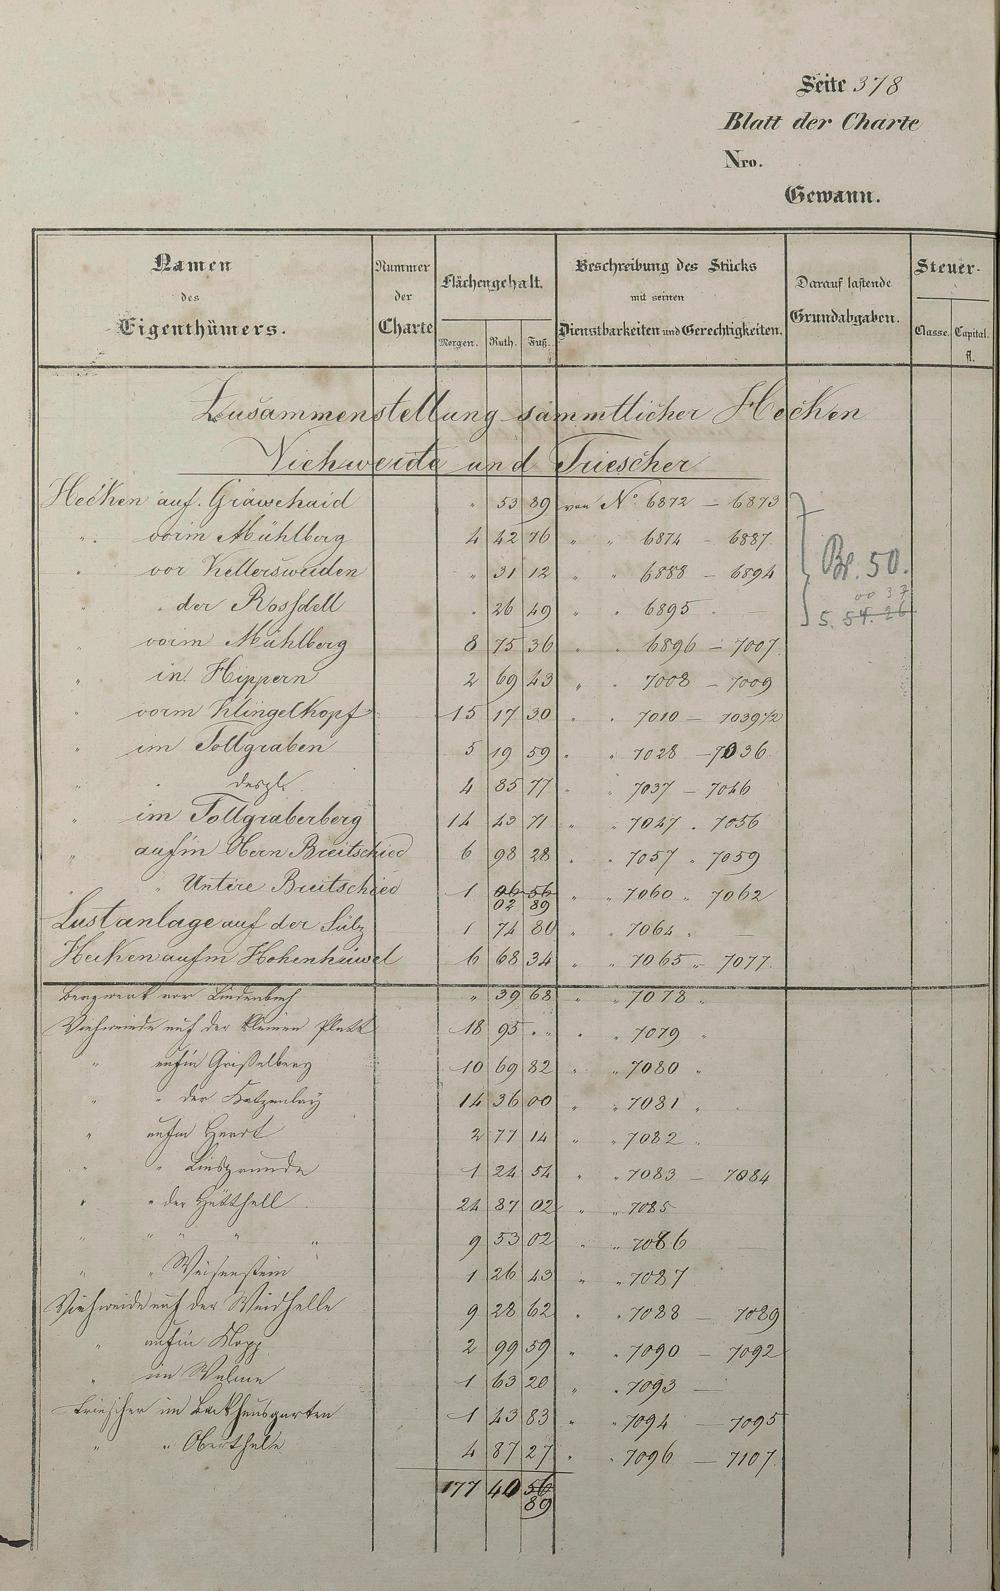 Seite 378
Blatt der Charte
Nro.
Gewann.
Namen des Eigenthümers.
Nummer der Charte
Flächengehalt.
Morgen. Ruth. Fuß.
Beschreibung des Stücks mit seinen Dienstbarkeiten und Gerechtigkeiten.
Darauf lastende Grundabgaben.
Steuer-
Classe. Capital. fl.
Zusammenstellung sämmtlicher Hecken
Viehweide und Triescher
Hecken auf Gräwehaid " 53 89 von No 6872 – 6873
" vorm Mühlberg 4 42 76 " " 6874 – 6887
" vor Kellersweiden " 31 12 " " 6888 – 6894
" " der Rossdell " 26 49 " " 6895 " —
" vorm Mühlberg 8 75 36 " " 6896 – 7007
" in Hippern 2 69 43 " " 7008 – 7009
" vorm Klingelkopf 15 17 30 " " 7010 – 7039½
" im Tollgraben 5 19 59 " " 7028 – 7036
" " deszl. 4 85 77 " " 7037 – 7046
" im Tollgraberberg 14 43 71 " " 7047 " 7056
" aufm Obern Breitschied 6 98 28 " " 7057 " 7059
" " Untere Breitschied 1 06 56 " " 7060 " 7062
02 89
Lustanlage auf der Sülz 1 74 80 " " 7064 " —
Hecken aufm Hohenhüwel 6 68 34 " " 7065 " 7077
Bergwerk vor Lindenbach " 39 68 " " 7078 "
Viehweide auf der kleinen Platt 18 95 " " " " 7079 "
" aufm Grisselberg 10 69 82 " " 7080 "
" " der Katzenlay 14 36 00 " " 7081 "
" aufm Haert 2 77 14 " " 7082 "
" " Liesgrunde 1 24 54 " " 7083 – 7084
" " der Hütthell 24 87 02 " " 7085
" " " " " 9 53 02 " " 7086
" " Weisenstein 1 26 43 " " 7087
Viehweide auf der Weidhelle 9 28 62 " " 7088 – 7089
" aufm Kopp 2 99 59 " " 7090 – 7092
" im Welme 1 63 20 " " 7093 —
Triescher im Backhausgarten 1 43 83 " " 7094 – 7095
" " Oberthale 4 87 27 " " 7096 – 7107
177 40 56
89
Br. 50.
00 37
5. 54. 26